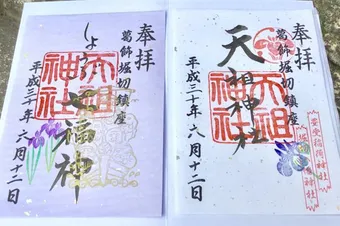 奉拝
葛飾堀切鎮座
しょうぶ七福神
天祖神社
平成三十年六月十二日
奉拝
葛飾堀切鎮座
天祖神社
天祖神社
平成三十年六月十二日